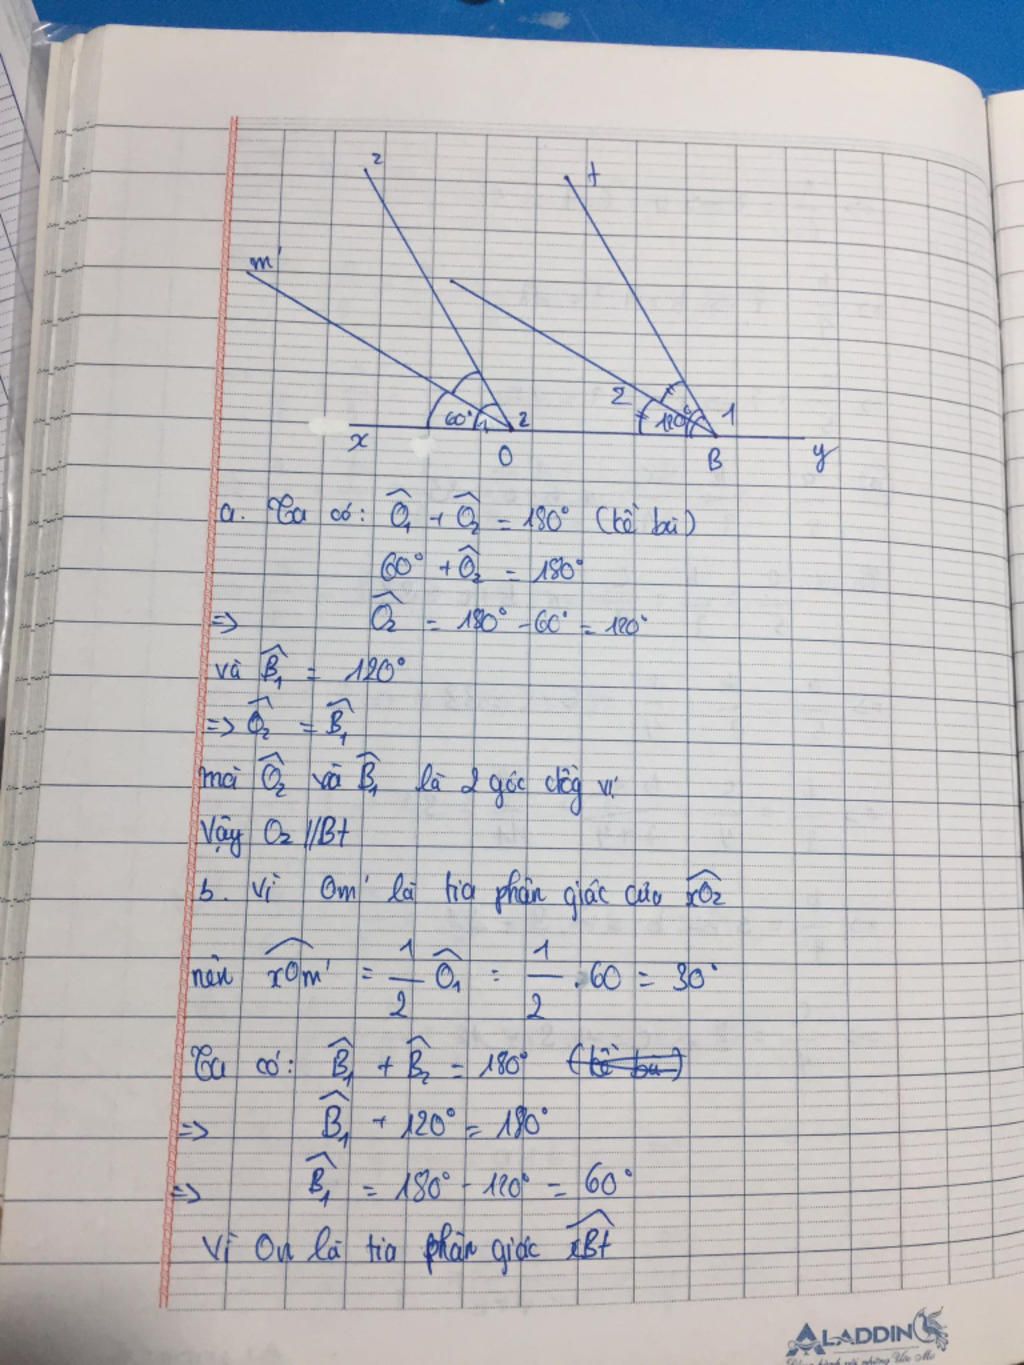 z
t
m'
60°
1
2
2
120°
1
x
O
B
y
a. Ta có: Ô₁ + Ô₂ = 180° (kề bù)
60° + Ô₂ = 180°
=> Ô₂ = 180° - 60° = 120°
và B̂₁ = 120°
=> Ô₂ = B̂₁
mà Ô₂ và B̂₁ là 2 góc đồg vị
Vậy Oz // Bt
b. Vì Om' là tia phân giác của xOz
nên xOm' = 1/2 Ô₁ = 1/2 . 60 = 30°
Ta có: B̂₁ + B̂₂ = 180° (kề bù)
=> B̂₁ + 120° = 180°
=> B̂₁ = 180° - 120° = 60°
Vì On là tia phân giác xBt
ALADDIN